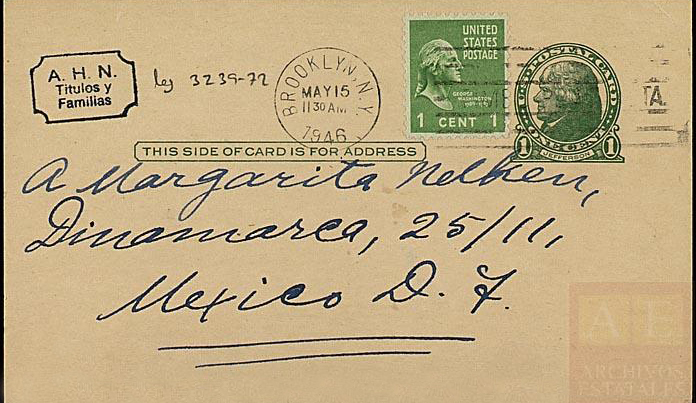 A. H. N.
Titulos y
Familias
leg 3239-72
BROOKLYN, N.Y.
MAY 15
11 30 AM
1946
UNITED
STATES
POSTAGE
GEORGE
WASHINGTON
1 CENT 1
U.S. POSTAL CARD
ONE CENT
1 JEFFERSON 1
TA.
THIS SIDE OF CARD IS FOR ADDRESS
A Margarita Nelken,
Dinamarca, 25/11,
Mexico D. F.
A E
ARCHIVOS
ESTATALES